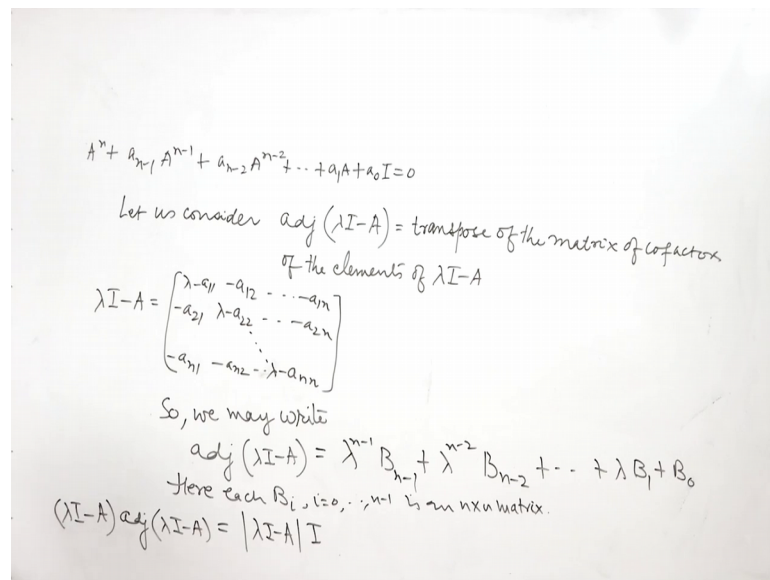 Aⁿ + aₙ₋₁ Aⁿ⁻¹ + aₙ₋₂ Aⁿ⁻² + .. + a₁A + a₀I = 0
Let us consider adj (λI-A) = transpose of the matrix of cofactors
of the elements of λI-A
λI-A = [λ-a₁₁ -a₁₂ . . . -a₁ₙ
-a₂₁ λ-a₂₂ . . . -a₂ₙ
-aₙ₁ -aₙ₂ .. λ-aₙₙ]
So, we may write
adj (λI-A) = λⁿ⁻¹ Bₙ₋₁ + λⁿ⁻² Bₙ₋₂ + .. + λ B₁ + B₀
Here each Bᵢ, i=0, .., n-1 is an nxn matrix.
(λI-A) adj (λI-A) = |λI-A| I